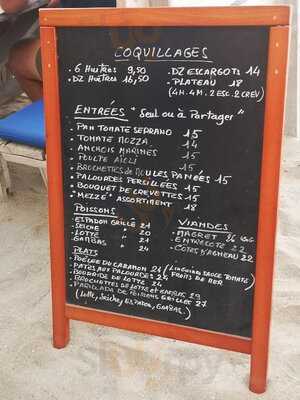 COQUILLAGES
. 6 Huîtres 9,50
. DZ Huîtres 16,50
. DZ ESCARGOTS 14
. PLATEAU 18
(4H. 4M. 2 ESC. 2 CREV)
ENTREES "Seul ou à Partager"
. PAN TOMATE SERRANO 15
. TOMATE MOZZA 14
. ANCHOIS MARINES 15
. POULPE AÏOLI 15
. BROCHETTES DE MOULES PANÉES 15
. PALOURDES PERSILLÉES 15
. BOUQUET DE CREVETTES 15
. "MEZZÉ" ASSORTIMENT 18
POISSONS
. ESPADON GRILLÉ 21
. SEICHE 20
. LOTTE 24
. GAMBAS 24
VIANDES
. MAGRET
. ENTRECOTE 22
. COTES D'AGNEAU 22
PLATS
. POÊLÉE DU CABANON 21 (LINGUINE SAUCE TOMATE FRUITS DE MER)
. PATES AUX PALOURDES 22
. BOURRIDE DE LOTTE 24
. BROCHETTES DE LOTTE ET GAMBAS 29
. PARILLADA DE POISSONS GRILLÉS 27
(Lotte, Seiches, ESPADON, GAMBAS)